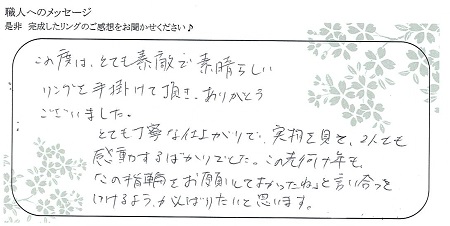 職人へのメッセージ
是非 完成したリングのご感想をお聞かせください♪
この度は、とても素敵で素晴らしい
リングを手掛けて頂き、ありがとう
ございました。
とても丁寧な仕上がりで、実物を見て、2人でも
感動するばかりでした。この先何十年も、
「この指輪をお願いしてよかったね」と言い合って
いけるよう、がんばりたいと思います。